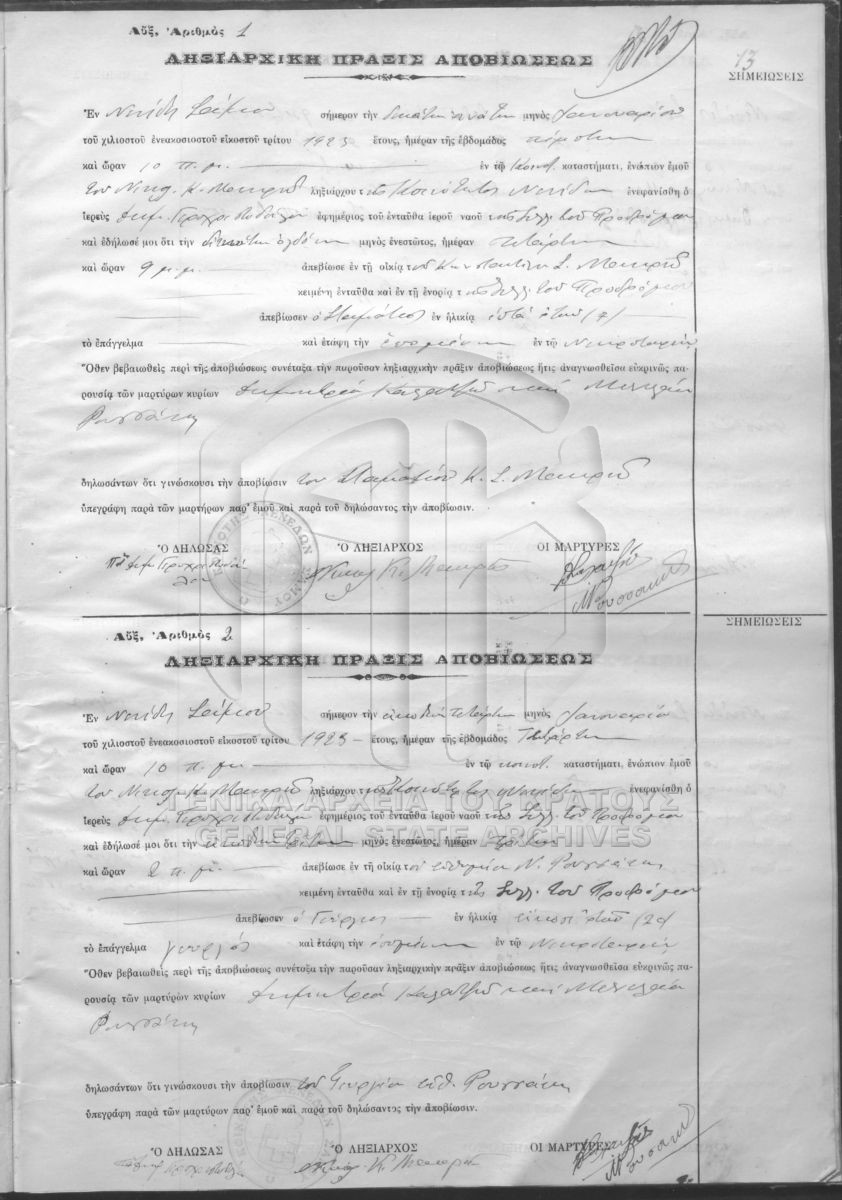 13
Αὔξ. Ἀριθμὸς 1
ΛΗΞΙΑΡΧΙΚΗ ΠΡΑΞΙΣ ΑΠΟΒΙΩΣΕΩΣ
ΣΗΜΕΙΩΣΕΙΣ
Ἐν Σάμου σήμερον τὴν δεκάτην ἐννάτην μηνὸς Ἰανουαρίου
τοῦ χιλιοστοῦ ἐνεακοσιοστοῦ εἰκοστοῦ τρίτου 1923 ἔτους, ἡμέραν τῆς ἑβδομάδος πέμπτην
καὶ ὥραν 10 π.μ. ἐν τῷ Κοινοτ. καταστήματι, ἐνώπιον ἐμοῦ
τοῦ Νικολ. Κ. Μακρῆ ληξιάρχου τῆς Κοινότητος ἐνεφανίσθη ὁ
ἱερεὺς Δημ. ἐφημέριος τοῦ ἐνταῦθα ἱεροῦ ναοῦ τῆς Συλλ. τοῦ Προδρόμου
καὶ ἐδήλωσέ μοι ὅτι τὴν δεκάτην ὀγδόην μηνὸς ἐνεστῶτος, ἡμέραν τετάρτην
καὶ ὥραν 9 μ.μ. ἀπεβίωσε ἐν τῇ οἰκίᾳ τοῦ Κωνσταντίνου Σ. Μακρῆ
κειμένῃ ἐνταῦθα καὶ ἐν τῇ ἐνορίᾳ τῆς Συλλ. τοῦ Προδρόμου
ἀπεβίωσεν ὁ Σταμάτιος ἐν ἡλικίᾳ ἑπτὰ ἐτῶν (7)
τὸ ἐπάγγελμα καὶ ἐτάφη τὴν ἑπομένην ἐν τῷ Νεκροταφείῳ
Ὅθεν βεβαιωθεὶς περὶ τῆς ἀποβιώσεως συνέταξα τὴν παροῦσαν ληξιαρχικὴν πρᾶξιν ἀποβιώσεως ἥτις ἀναγνωσθεῖσα εὐκρινῶς πα-
ρουσίᾳ τῶν μαρτύρων κυρίων Δημητρίου καὶ Μενελάου
Ρουσσάκη
δηλωσάντων ὅτι γινώσκουσι τὴν ἀποβίωσιν τοῦ Σταματίου Κ. Σ. Μακρῆ
ὑπεγράφη παρὰ τῶν μαρτύρων παρ' ἐμοῦ καὶ παρὰ τοῦ δηλώσαντος τὴν ἀποβίωσιν.
Ὁ ΔΗΛΩΣΑΣ Ὁ ΛΗΞΙΑΡΧΟΣ ΟΙ ΜΑΡΤΥΡΕΣ
Νικολ. Κ. Μακρῆς
Μ Ρουσσάκης
Αὔξ. Ἀριθμὸς 2
ΣΗΜΕΙΩΣΕΙΣ
ΛΗΞΙΑΡΧΙΚΗ ΠΡΑΞΙΣ ΑΠΟΒΙΩΣΕΩΣ
Ἐν Σάμου σήμερον τὴν εἰκοστὴν τετάρτην μηνὸς Ἰανουαρίου
τοῦ χιλιοστοῦ ἐνεακοσιοστοῦ εἰκοστοῦ τρίτου 1923 - ἔτους, ἡμέραν τῆς ἑβδομάδος Τετάρτην
καὶ ὥραν 10 π.μ. ἐν τῷ κοινοτ. καταστήματι, ἐνώπιον ἐμοῦ
τοῦ Νικολ. Κ. Μακρῆ ληξιάρχου τῆς Κοινότητος ἐνεφανίσθη ὁ
ἱερεὺς Δημ. ἐφημέριος τοῦ ἐνταῦθα ἱεροῦ ναοῦ τῆς Συλλ. τοῦ Προδρόμου
ΓΕΝΙΚΑ ΑΡΧΕΙΑ ΤΟΥ ΚΡΑΤΟΥΣ
GENERAL STATE ARCHIVES
καὶ ἐδήλωσέ μοι ὅτι τὴν εἰκοστὴν τρίτην μηνὸς ἐνεστῶτος, ἡμέραν Τρίτην
καὶ ὥραν 2 π.μ. ἀπεβίωσε ἐν τῇ οἰκίᾳ τοῦ Ν. Ρουσσάκη
κειμένῃ ἐνταῦθα καὶ ἐν τῇ ἐνορίᾳ τῆς Συλλ. τοῦ Προδρόμου
ἀπεβίωσεν ὁ Γεώργιος ἐν ἡλικίᾳ εἴκοσι ἐτῶν (20)
τὸ ἐπάγγελμα γεωργός καὶ ἐτάφη τὴν ἑπομένην ἐν τῷ Νεκροταφείῳ
Ὅθεν βεβαιωθεὶς περὶ τῆς ἀποβιώσεως συνέταξα τὴν παροῦσαν ληξιαρχικὴν πρᾶξιν ἀποβιώσεως ἥτις ἀναγνωσθεῖσα εὐκρινῶς πα-
ρουσίᾳ τῶν μαρτύρων κυρίων Δημητρίου καὶ Μενελάου
Ρουσσάκη
δηλωσάντων ὅτι γινώσκουσι τὴν ἀποβίωσιν τοῦ Γεωργίου Ρουσσάκη
ὑπεγράφη παρὰ τῶν μαρτύρων παρ' ἐμοῦ καὶ παρὰ τοῦ δηλώσαντος τὴν ἀποβίωσιν.
Ὁ ΔΗΛΩΣΑΣ Ὁ ΛΗΞΙΑΡΧΟΣ ΟΙ ΜΑΡΤΥΡΕΣ
Νικολ. Κ. Μακρῆς
Μ Ρουσσάκης